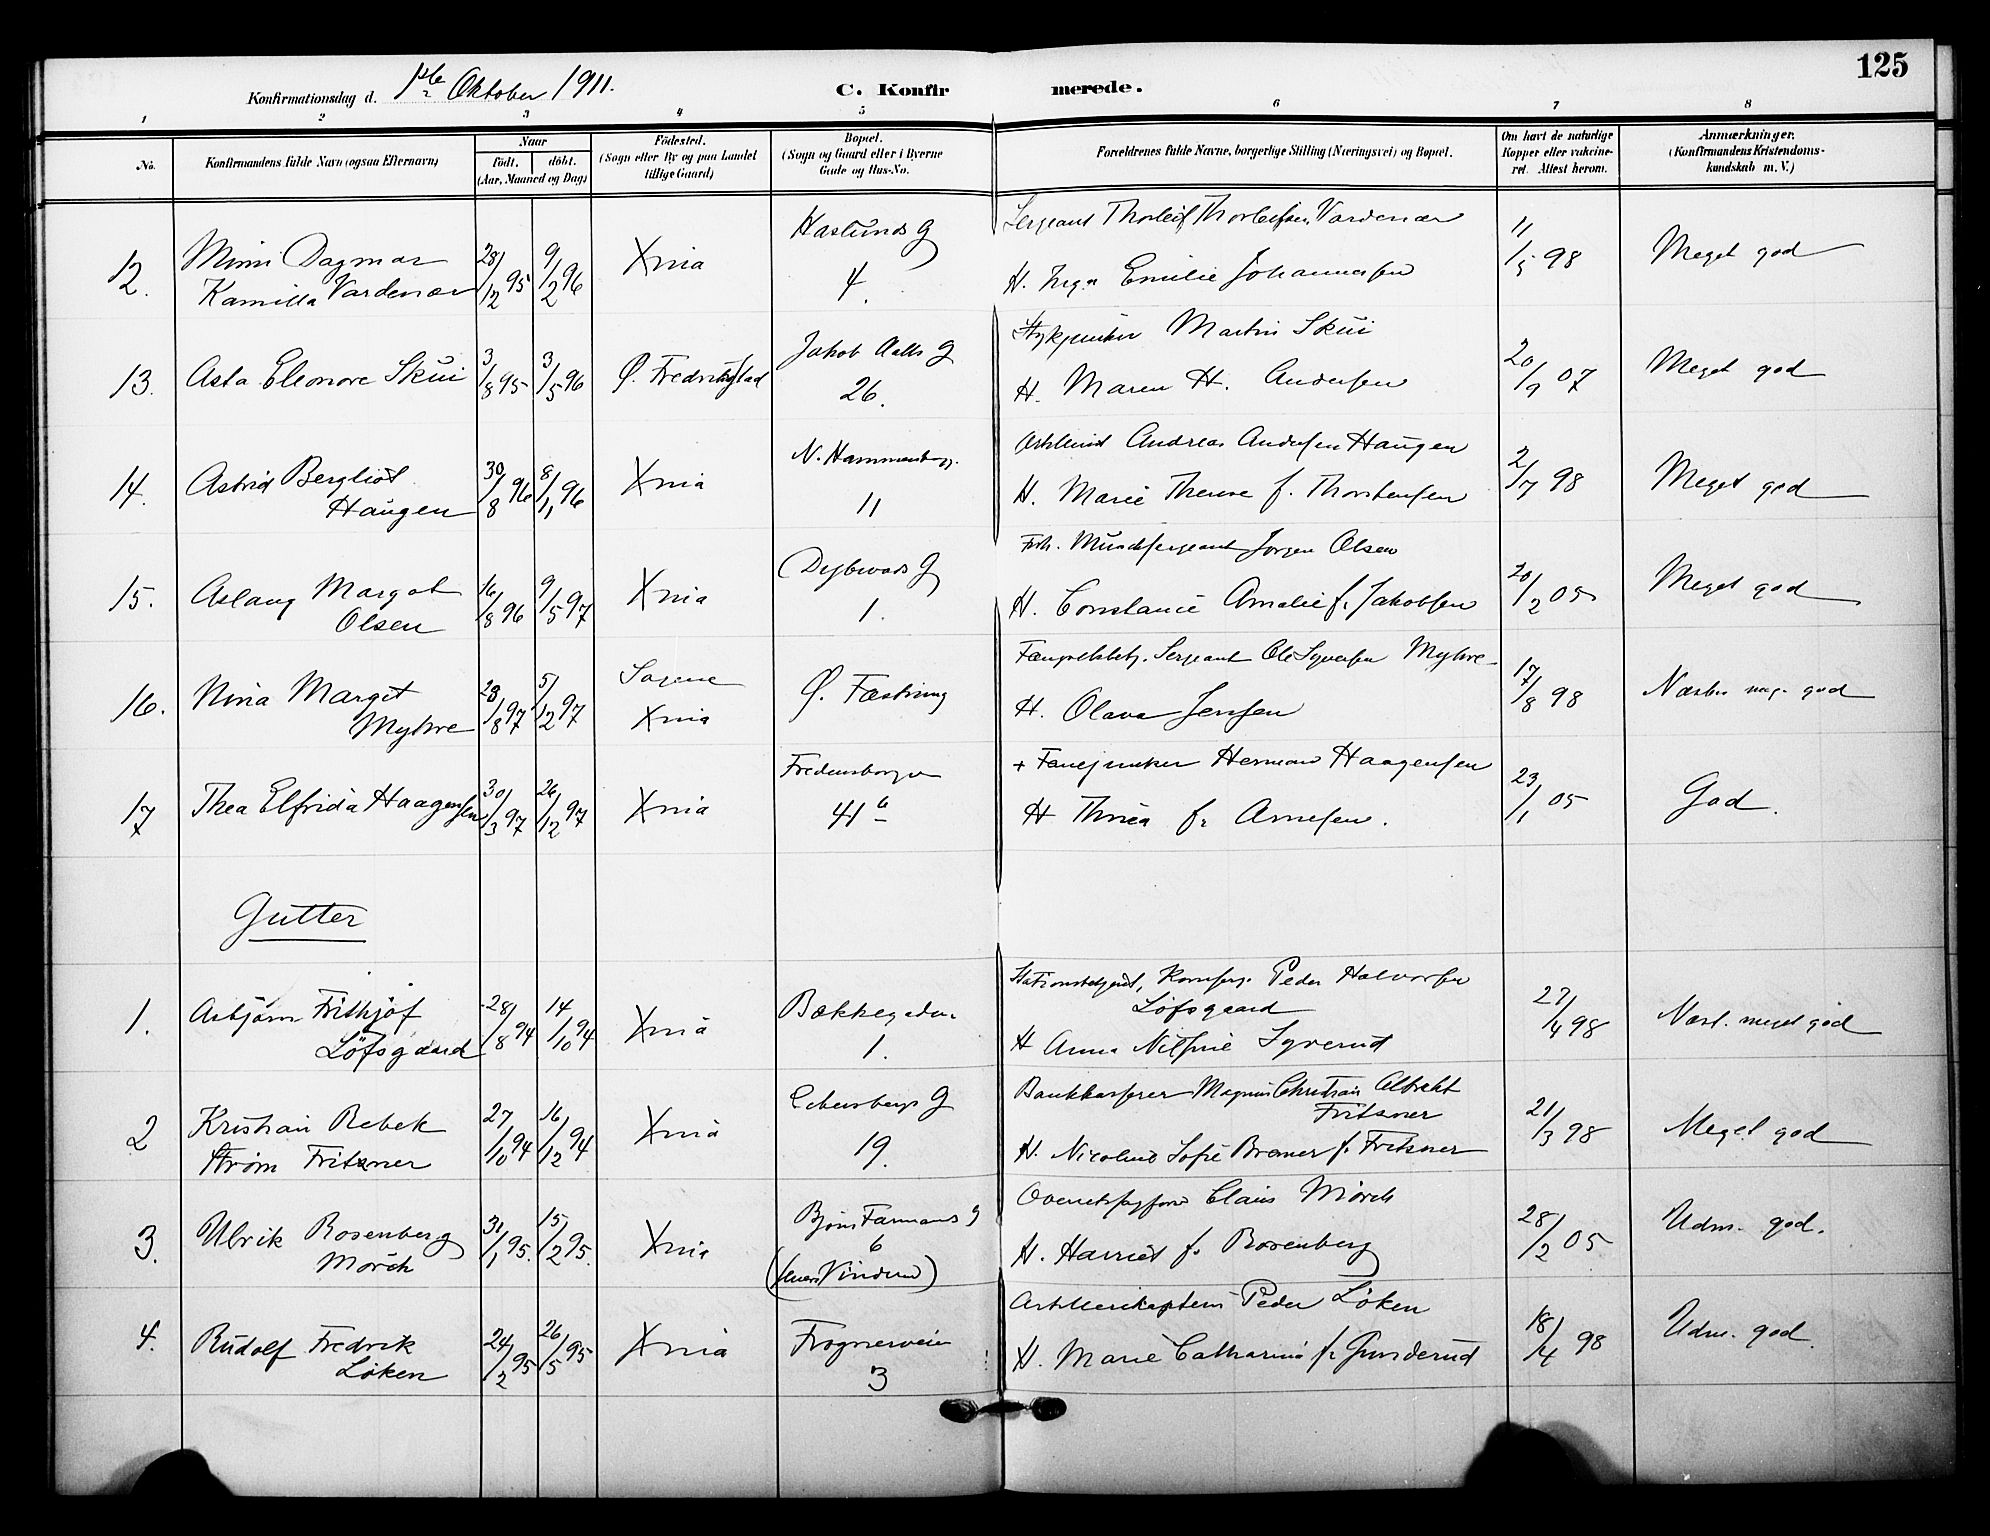 125
Konfirmationsdag d. 1ste Oktober 1911.
C. Konfir merede.
1 2 3 4 5 6 7 8
No.
Konfirmandens fulde Navn (ogsaa Efternavn)
Naar
födt. döbt.
(Aar, Maaned og Dag)
Födested.
(Sogn eller By og paa Landet
tillige Gaard)
Bopæl.
(Sogn og Gaard eller i Byerne
Gade og Hus-No.
Forældrenes fulde Navne, borgerlige Stilling (Næringsvei) og Bopæl.
Om havt de naturlige
Kopper eller vakcine-
ret. Attest herom.
Anmærkninger.
(Konfirmandens Kristendoms-
kundskab m. V.)
12. Mimi Dagmar
Kamilla Vardenær
28/12 95 9/2 96 Xnia
Haslunds g
4.
Sergeant Thorleif Thorleifsen Vardenær
H. Inga Emilie Johannesen
11/5 98 Meget god
13. Asta Eleonore Skui 3/8 95 3/5 96 Ø. Fredrikstad
Jakob Aalls g
26.
Martin Skui
H. Maren H. Andersen
20/9 07 Meget god
14. Astrid Bergliot
Haugen
30/8 96 8/1 96 Xnia
N. Hammersborg.
11
Andreas Andersen Haugen
H. Marie Therese f. Thorstensen
2/7 98 Meget god
15. Aslaug Margot
Olsen
16/8 96 9/5 97 Xnia
Dybwads g
1.
Fhv. Mundersergeant Jørgen Olsen
H. Constance Amalie f. Jakobsen
20/2 05 Meget god
16. Nina Margit
Myhre
28/8 97 5/12 97
Sagene
Xnia
Ø. Fæstning
Fængselsbetj. Sergeant Ole Syversen Myhre
H. Olava Jensen
17/8 98 Næsten meg. god
17 Thea Elfrida Haagensen 30/3 97 26/12 97 Xnia
Fredensborgv
41 b
+ Fanejunker Herman Haagensen
H Thrica f. Arnesen.
23/1 05 God.
Gutter
1. Asbjørn Frithjof
Löfsgaard
28/8 94 14/10 94 Xnia
Bækkegaden
1.
Stationsbetjent, Peder Halvorsen
Løfsgaard
H Anna Nilsine Syverud
27/4 98 Næst. meget god
2 Kristian Rebek
Strøm Fritzner
27/10 94 16/12 94 Xnia
Eckersbergs g
19.
Bankkasserer Magnus Christian Albrekt
Fritzner
H. Nicoline Sofie Bremer f. Fritzner
21/3 98 Meget god
3. Ulrik Rosenberg
Mörch
31/1 95. 15/2 95. Xnia
Bjørn Farmanns g
6
Overretssagfører Claus Mörch
H. Harriet f. Rosenberg
28/2 05 Udm. god.
4. Rudolf Fredrik
Løken
24/2 95 26/5 95 Xnia
Frognerveien
3
Artillerikaptein Peder Löken
H. Marie Catharina f. Gunderud
18/4 98 Udm. god.